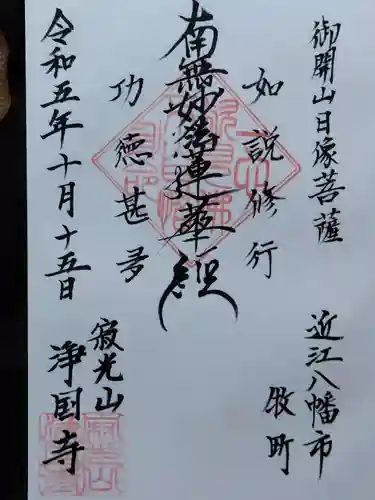 御開山日像菩薩
近江八幡市
牧町
如説修行
南無妙法蓮華経
功徳甚多
令和五年十月十五日
寂光山
浄国寺